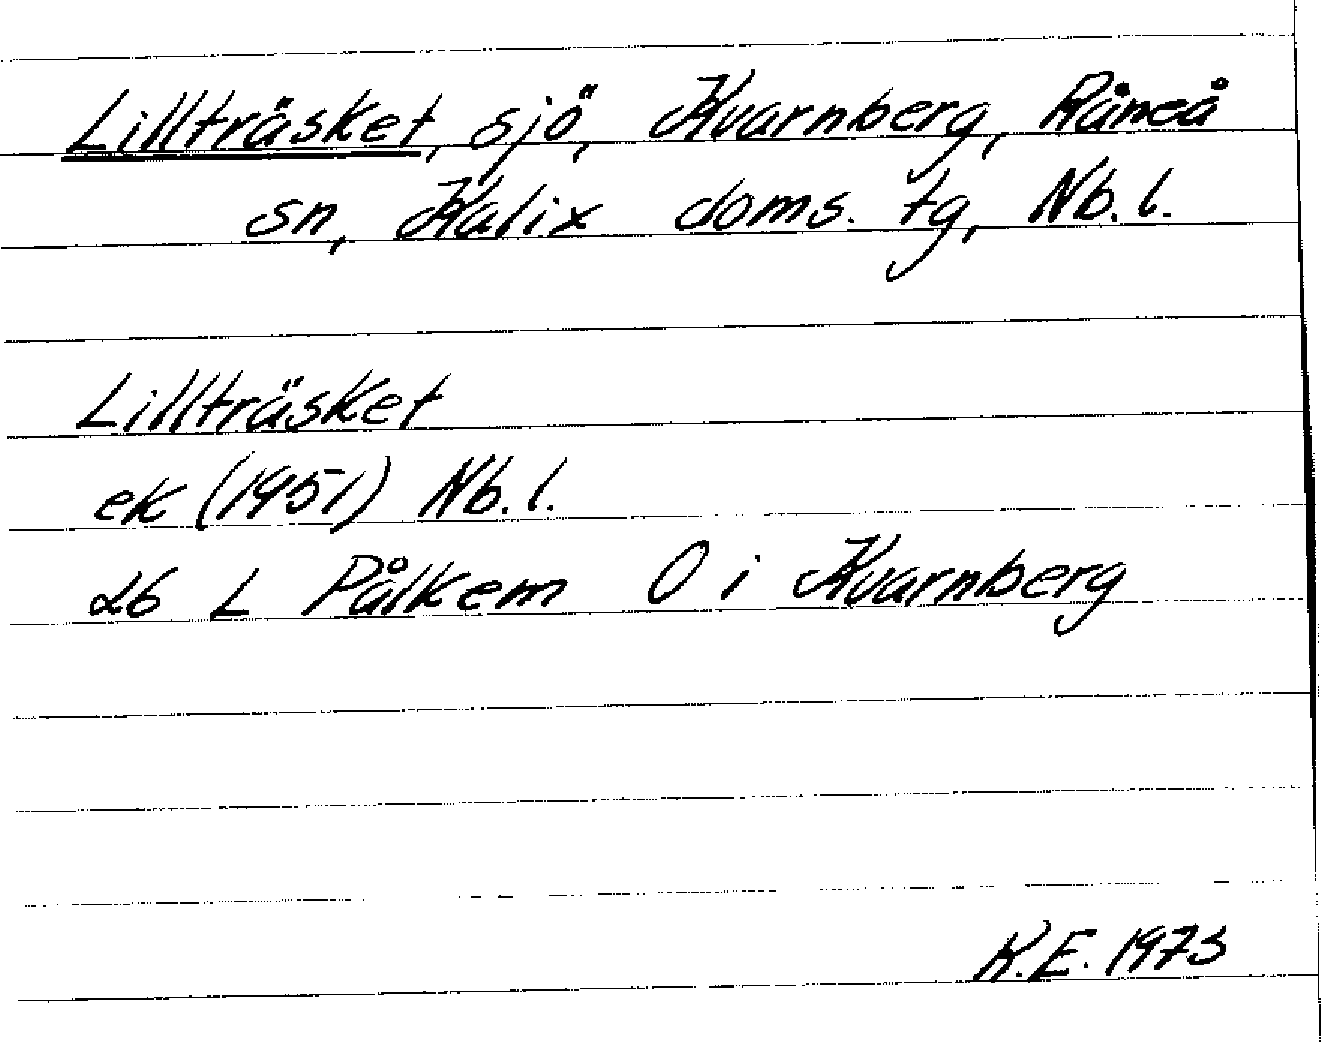 Lillträsket, sjö, Kvarnberg, Råneå
sn, Kalix doms. tg, Nb. l.
Lillträsket
ek (1951) Nb. l.
26 L Pålkem O i Kvarnberg
K.E. 1973